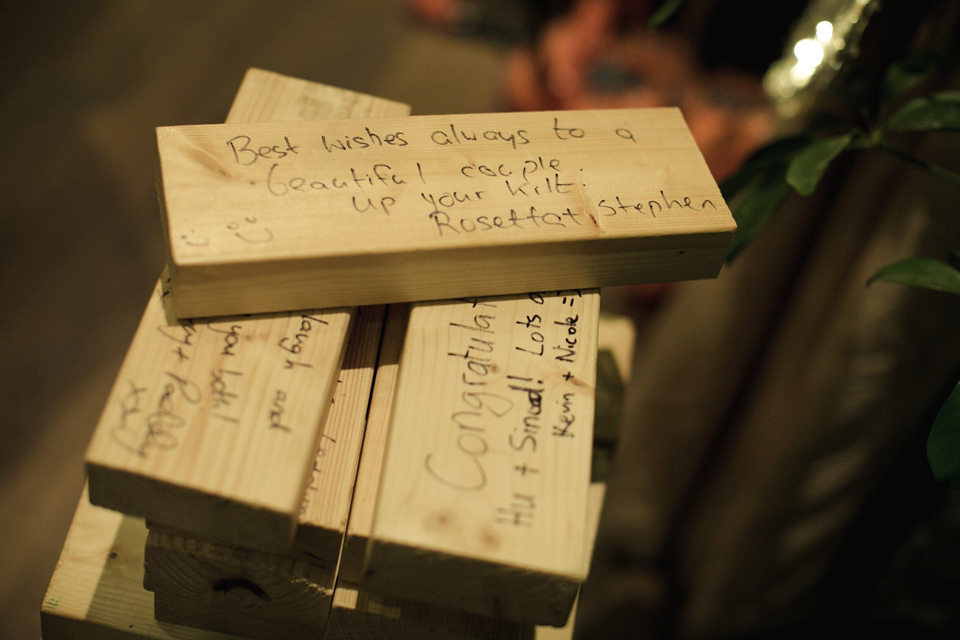 Best wishes always to a
beautiful couple.
up your kilt.
Rosettat Stephen
laugh and
you both!
Congratulat
Hu + Sinead! Lots o
Kevin + Nicole =)